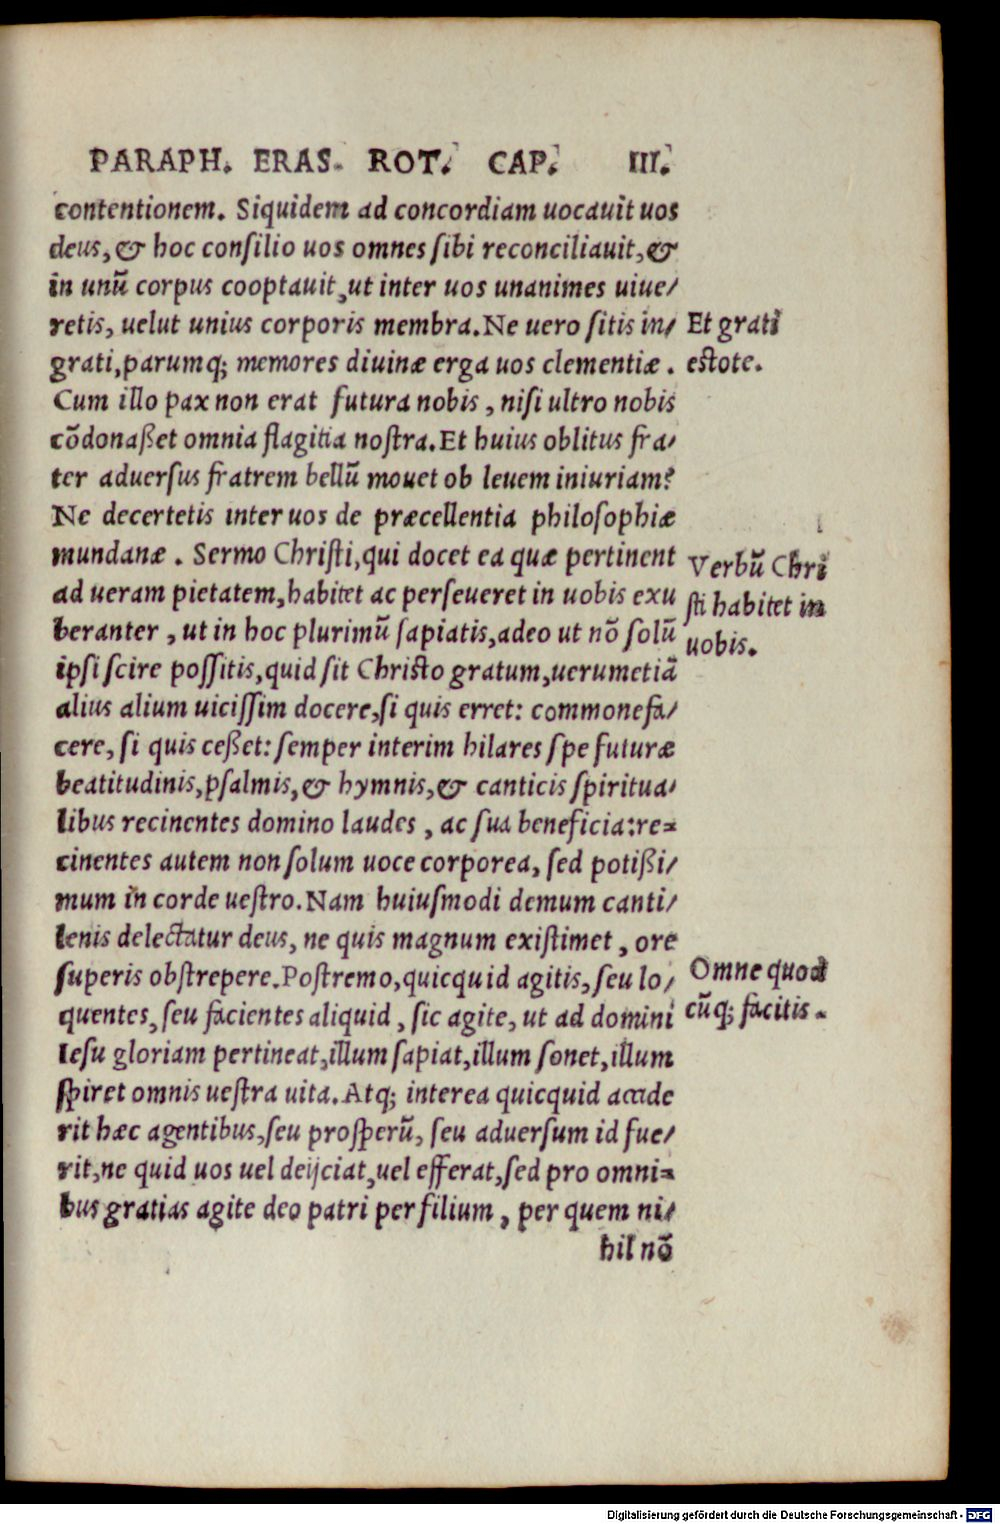 PARAPH. ERAS. ROT. CAP. III.
contentionem. Siquidem ad concordiam uocauit uos
deus, & hoc consilio uos omnes sibi reconciliauit, &
in unũ corpus cooptauit, ut inter uos unanimes uiue/
retis, uelut unius corporis membra. Ne uero sitis in/
grati, parumq; memores diuinæ erga uos clementiæ.
Cum illo pax non erat futura nobis, nisi ultro nobis
cõdonaßet omnia flagitia nostra. Et huius oblitus fra/
ter aduersus fratrem bellũ mouet ob leuem iniuriam?
Ne decertetis inter uos de præcellentia philosophiæ
mundanæ. Sermo Christi, qui docet ea quæ pertinent
ad ueram pietatem, habitet ac perseueret in uobis exu
beranter, ut in hoc plurimũ sapiatis, adeo ut nõ solũ
ipsi scire possitis, quid sit Christo gratum, uerumetiã
alius alium uicissim docere, si quis erret: commonefa/
cere, si quis ceßet: semper interim hilares spe futuræ
beatitudinis, psalmis, & hymnis, & canticis spiritua/
libus recinentes domino laudes, ac sua beneficia: re=
cinentes autem non solum uoce corporea, sed potißi/
mum in corde uestro. Nam huiusmodi demum canti/
lenis delectatur deus, ne quis magnum existimet, ore
superis obstrepere. Postremo, quicquid agitis, seu lo/
quentes, seu facientes aliquid, sic agite, ut ad domini
Iesu gloriam pertineat, illum sapiat, illum sonet, illum
spiret omnis uestra uita. Atq; interea quicquid accide
rit hæc agentibus, seu prosperũ, seu aduersum id fue/
rit, ne quid uos uel deijciat, uel efferat, sed pro omni=
bus gratias agite deo patri per filium, per quem ni/
hil nõ
Et grati
estote.
Verbũ Chri
sti habitet in
uobis.
Omne quod
cũq; facitis.
Digitalisierung gefördert durch die Deutsche Forschungsgemeinschaft - DFG